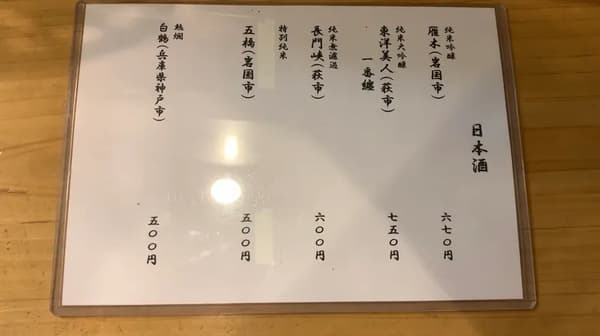 日本酒
純米吟醸
雁木(岩国市)
六七〇円
純米大吟醸
東洋美人(萩市)
一番纏
七五〇円
純米無濾過
長門峡(萩市)
六〇〇円
特別純米
五橋(岩国市)
五〇〇円
熱燗
白鶴(兵庫県神戸市)
五〇〇円